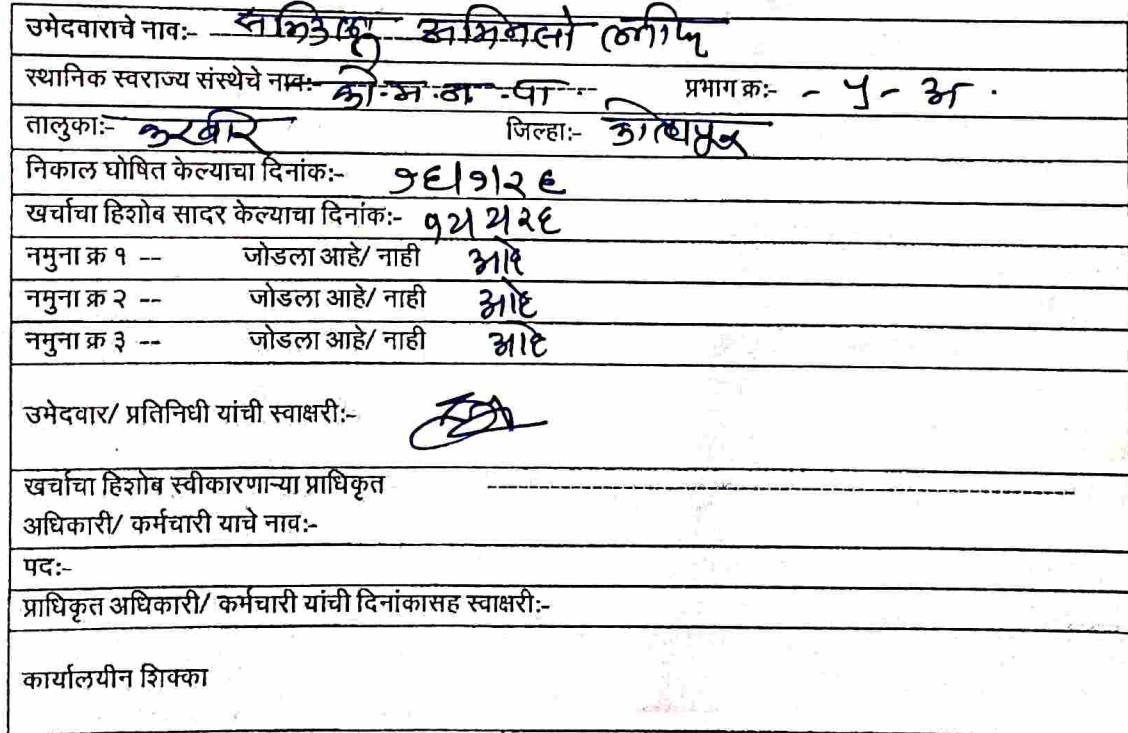 उमेदवाराचे नाव:-
स्थानिक स्वराज्य संस्थेचे नाव:- को.म.न.पा. प्रभाग क्र:- - ५ - अ.
तालुका:- करवीर जिल्हा:- कोल्हापूर
निकाल घोषित केल्याचा दिनांक:- १६/१/२६
खर्चाचा हिशोब सादर केल्याचा दिनांक:-
नमुना क्र १ -- जोडला आहे/ नाही आहे
नमुना क्र २ -- जोडला आहे/ नाही आहे
नमुना क्र ३ -- जोडला आहे/ नाही आहे
उमेदवार/ प्रतिनिधी यांची स्वाक्षरी:-
खर्चाचा हिशोब स्वीकारणाऱ्या प्राधिकृत
अधिकारी/ कर्मचारी याचे नाव:-
पद:-
प्राधिकृत अधिकारी/ कर्मचारी यांची दिनांकासह स्वाक्षरी:-
कार्यालयीन शिक्का